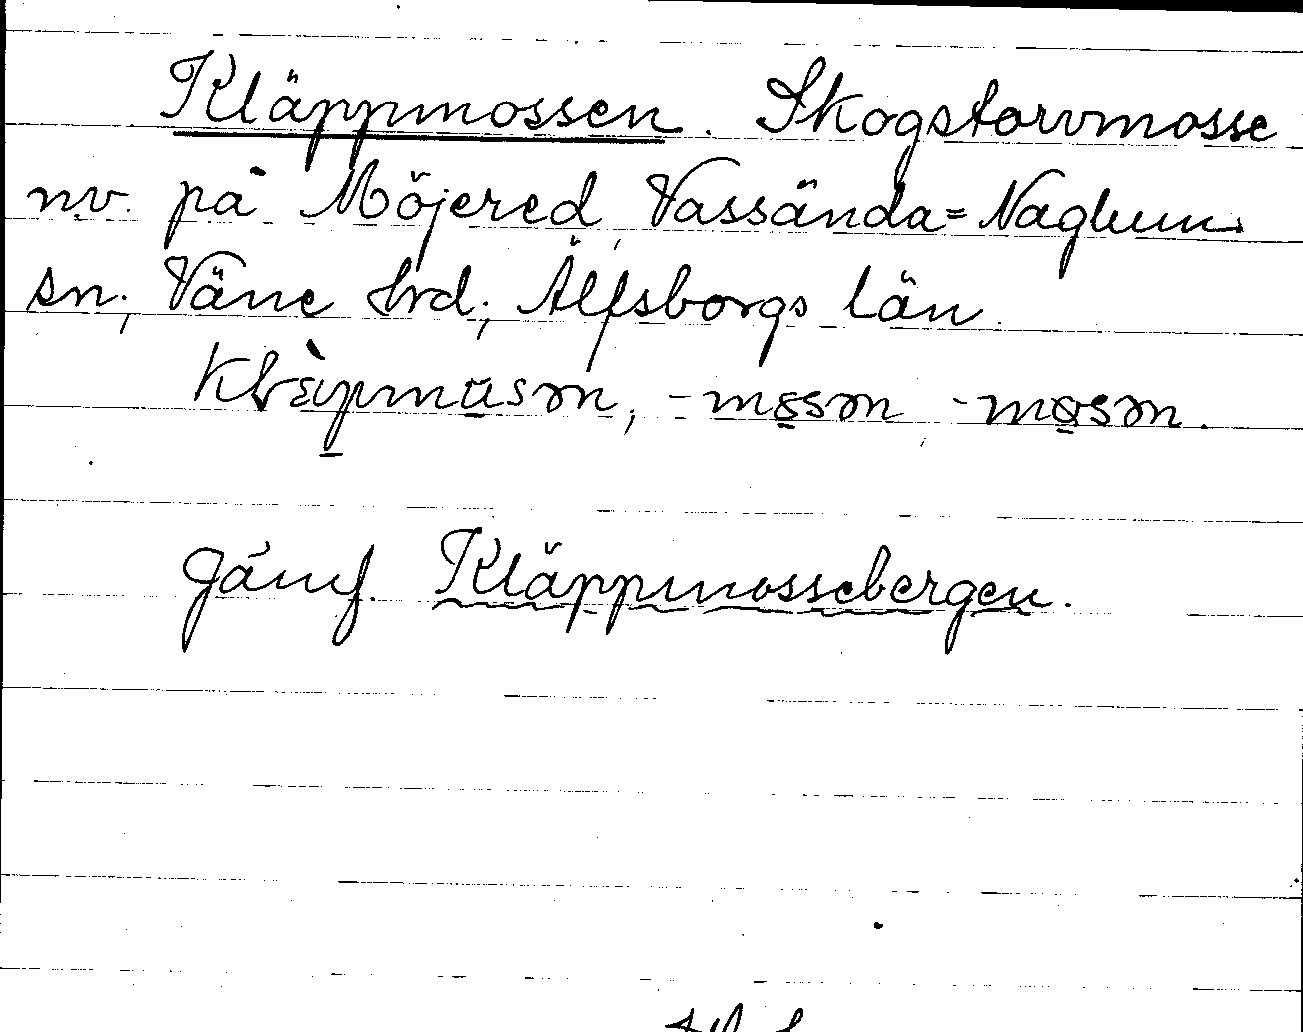 Kläppmossen. Skogstorvmosse
nv. på Möjered, Vassända=Naglum
sn; Väne hrd; Älfsborgs län.
Jämf. Kläppmossebergen.